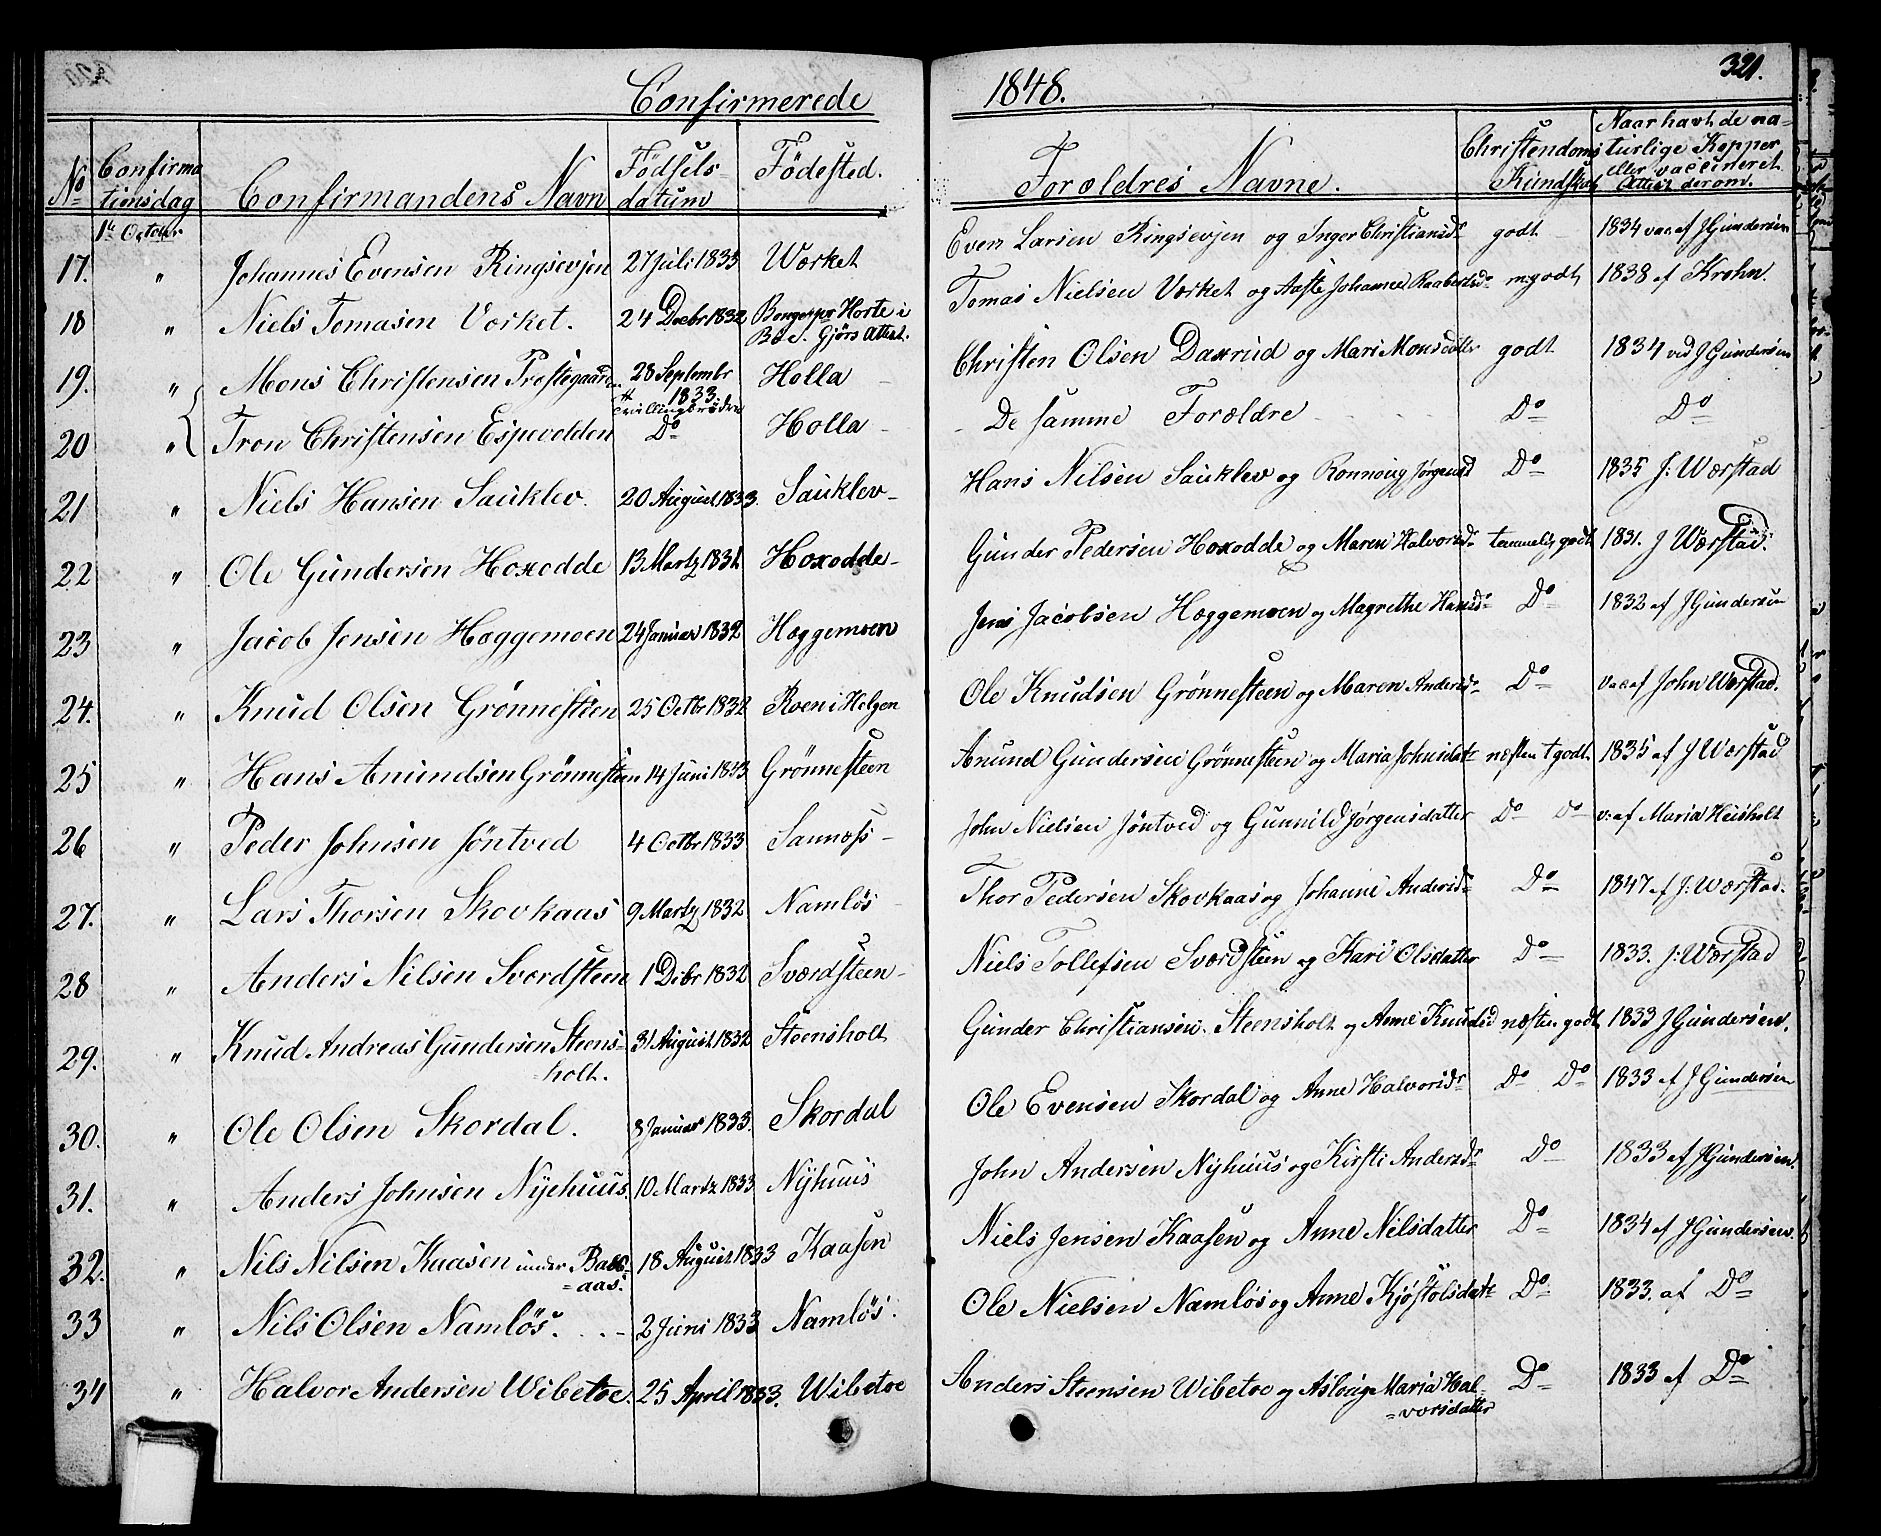 Confirmerede
1848.
321.
No
Confirma
tionsdag
Confirmandens Navn
Födsels
datum
Födested.
Forældres Navne.
Christendoms
Kundskab
Naar havt de na-
turlige Kopper
eller vaccineret
Attest derom.
1ste October
17. " Johannes Evensen Ringsevjen 27 Juli 1833 Værket Even Larsen Ringsevjen og Inger Christiansdr godt 1834 vac. af J Gundersen
18 " Niels Tomasen Vorket. 24 Decbr 1832 Horte i
Bö S. Gjörs Attest. Tomas Nielsen Vorket og Aaste Johanne m: godt 1838 af Krohn.
19. " Mons Christensen Præstegaarden 28 Septembr
1833
Tvillingbrödre Holla Christen Olsen Daxrud og Mari Monsdatter godt 1834 ved J Gundersen
20 " Tron Christensen Espevolden Do Holla - De samme Forældre Do Do
21 " Niels Hansen Sauklev. 20 August 1833. Sauklev- Hans Nilsen Sauklev og Ronnoug Jørgensd Do 1835 J: Wærstad
22 " Ole Gundersen Hoxodde 13 Martz 1831 Hoxodde- Gunder Pedersen Hoxodde og Maren Halvorsdr temmelig godt 1831. J Wærstad.
23 " Jacob Jensen Hæggemoen 24 Januar 1832 Hæggemoen Jens Jacobsen Hæggemoen og Magrethe Hansdr Do 1832 af J Gundersen
24. " Knud Olsen Grönnesteen 25 Octbr 1832 Roen i Helgen Ole Knudsen Grönnesteen og Maren Andersdr Do vac af John Wærstad.
25 " Hans Anundsen Grönnesteen 14 Juni 1833 Grönnesteen Anund Gundersen Grönnesteen og Maria Johnsdatr næsten t godt. 1835 af J Wærstad
26 " Peder Johnsen Jöntved 4 Octbr 1833 Sannæss- John Nielsen Jöntved og Gunnild Jørgensdatter Do Do v: af Maria Heisholt
27. " Lars Thorsen Skovkaas 9 Martz 1832 Namlös Thor Pedersen Skovkaas og Johanne Andersdr Do 1847 af J: Wærstad.
28 " Anders Nilsen Sværdsteen 1 Debr 1832 Sværdsteen- Niels Tollefsen Sværdsteen og Kari Olsdatter Do 1833. J: Wærstad
29. " Knud Andreas Gundersen Steens=
=holt. 31 August 1832 Steensholt Gunder Christiansen Steensholt og Anne Knudsd næsten godt 1833 J Gundersen.
30. " Ole Olsen Skordal. 8 Januar 1833. Skordal Ole Evensen Skordal og Anne Halvorsdr Do Do 1833 af J Gundersen
31. " Anders Johnsen Nyehuus. 10 Martz 1833 Nyhuus John Andersen Nyhuus og Kirsti Andersdr Do 1833 af J Gundersen.
32. " Nils Nilsen Kaasen under
=aas. 18 August 1833 Kaasen Niels Jensen Kaasen og Anne Nilsdatter Do 1834 af J Gundersen.
33 " Nils Olsen Namlös. 2 Juni 1833 Namlös. Ole Nielsen Namlös og Anne Kjöstolsdatr Do 1833. af Do
34 " Halvor Andersen Wibetoe. 25 April 1833. Wibetoe Anders Steensen Wibetoe og Asloug Maria Hal-
=vorsdatter Do 1833 af Do